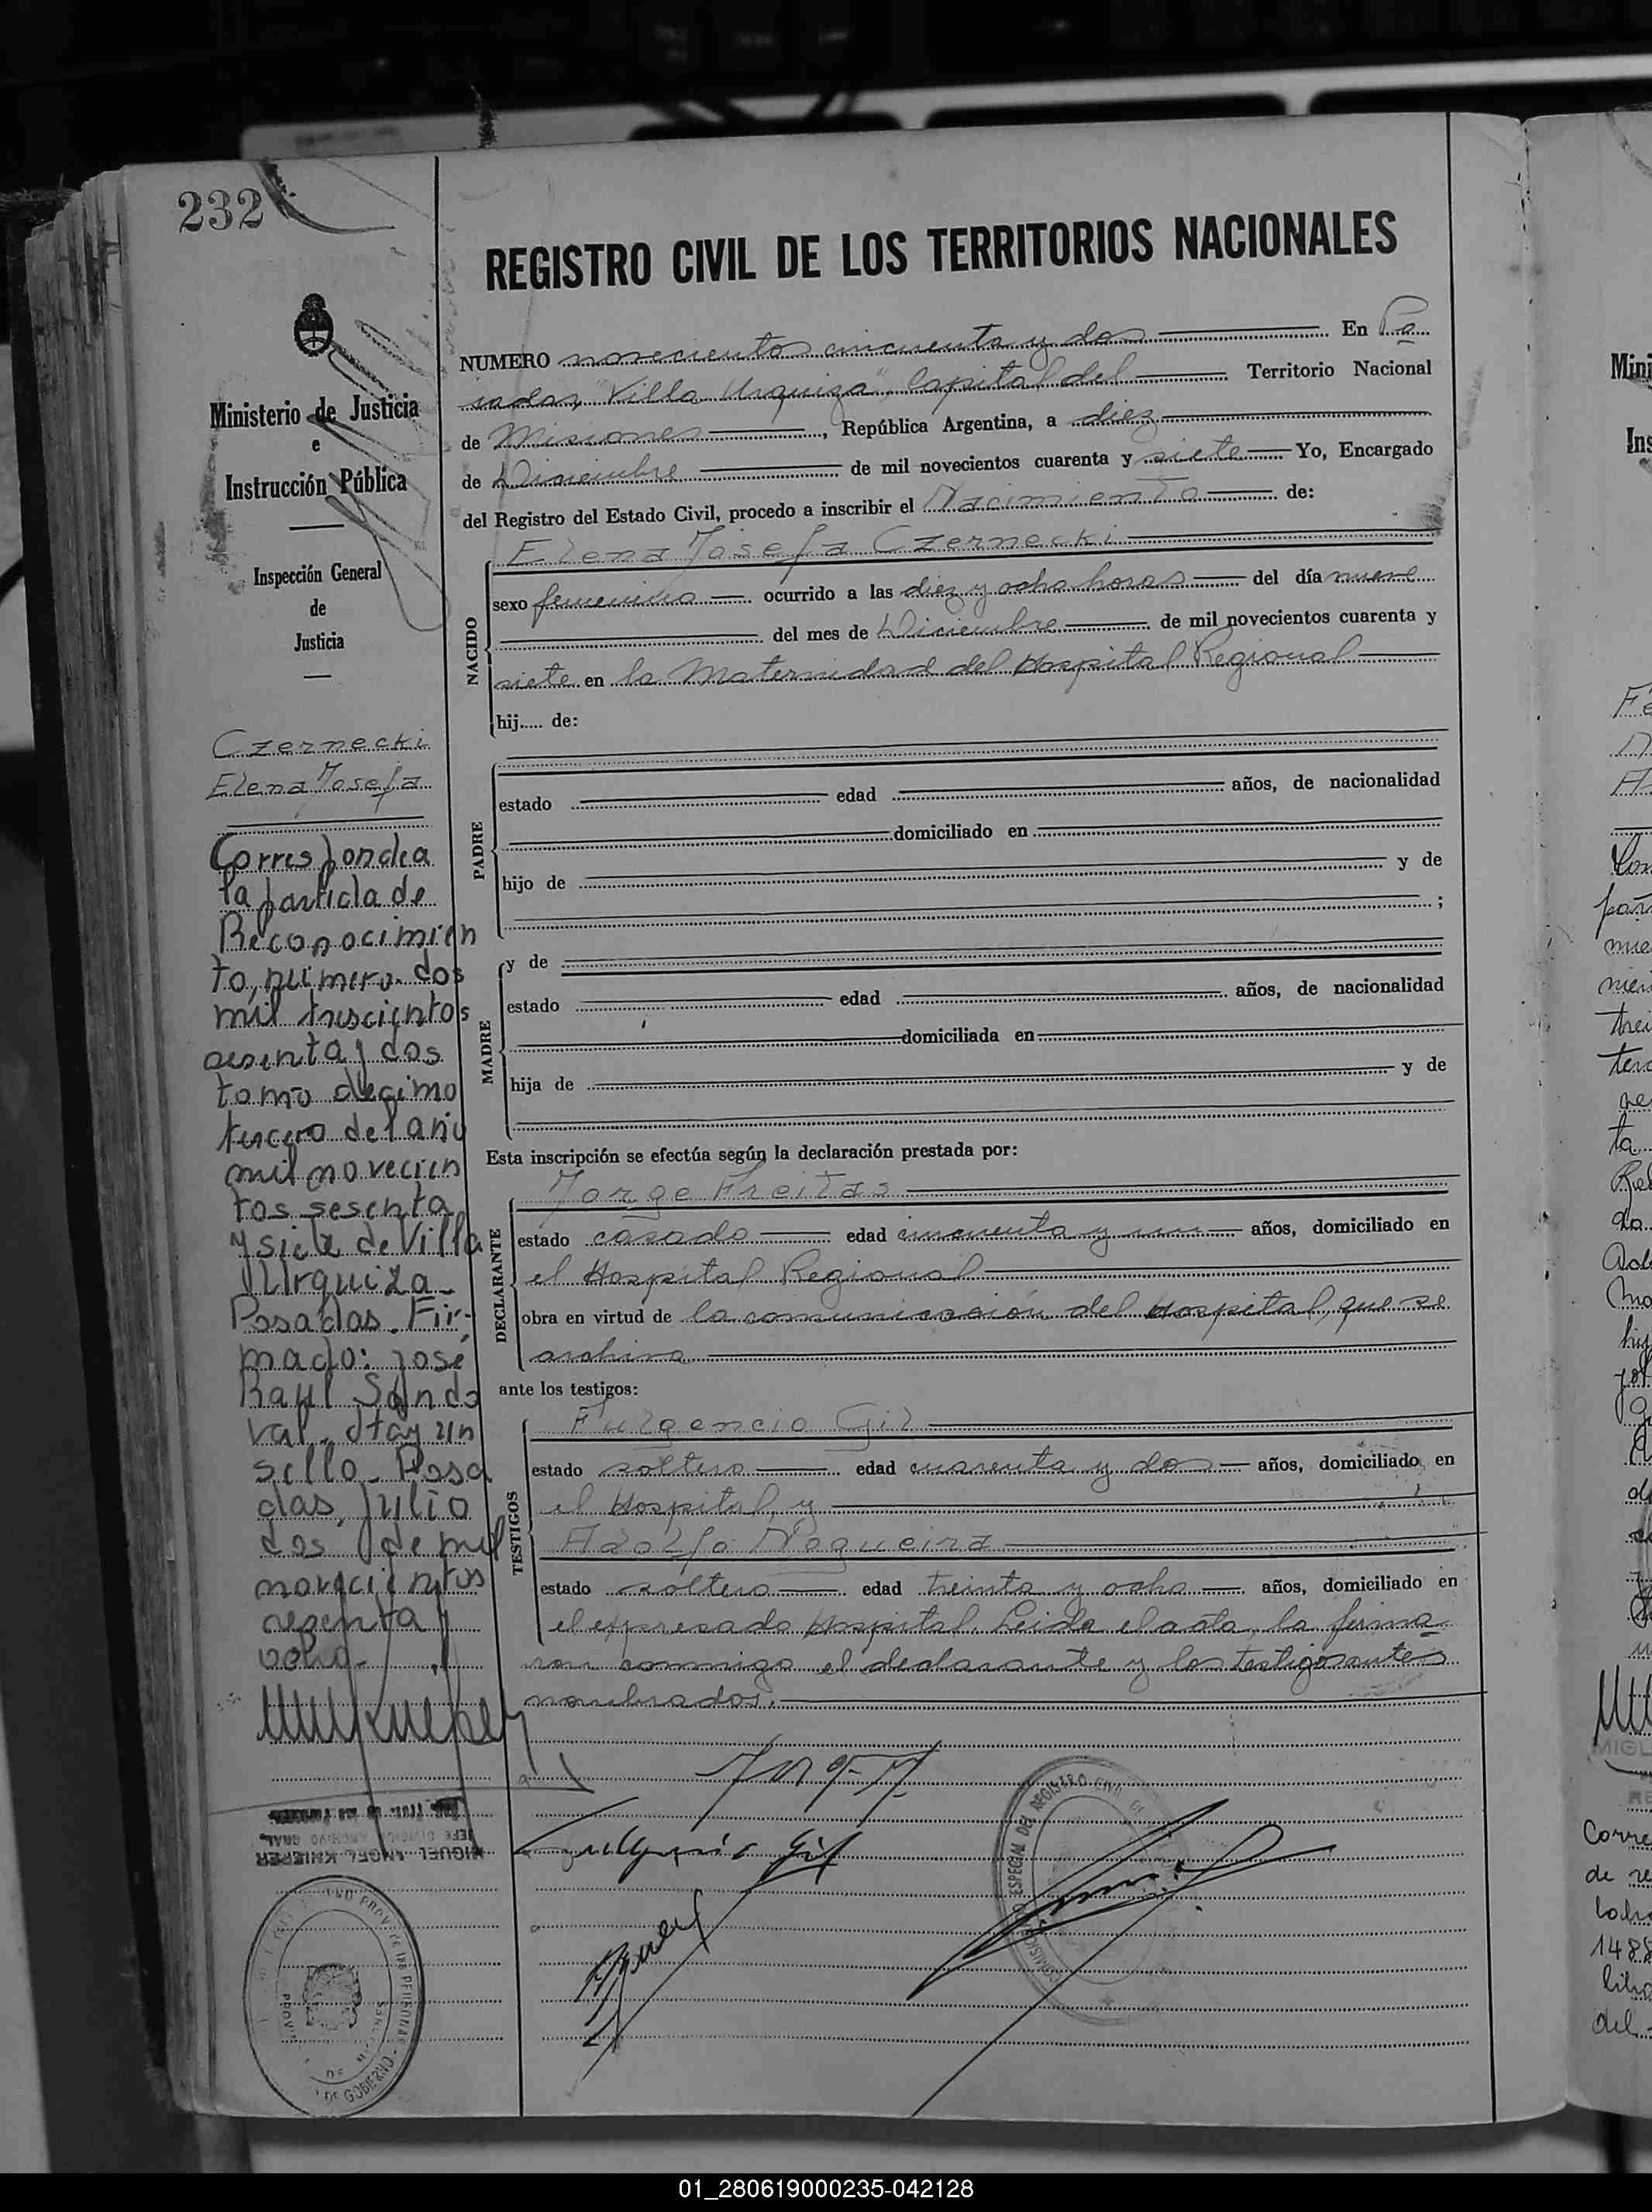 232
Ministerio de Justicia
e
Instrucción Pública
Inspección General
de
Justicia
Czernecki
Elena Josefa
Corresponde a
la partida de
Reconocimien
to, número dos
mil trescientos
sesenta y dos
tomo decimo
tercero del año
mil novecien
tos sesenta
y siete de Villa
Urquiza -
Posadas. Fir-
mado: José
Raul Sando
val. Hay un
sello - Posa
das, Julio
dos de mil
novecientos
sesenta y
ocho -
MIGUEL ANGEL KNIEPER
JEFE DIVISION ARCHIVO GRAL.
REGISTRO CIVIL DE LOS TERRITORIOS NACIONALES
NUMERO novecientos cincuenta y dos En Po
sadas, "Villa Urquiza", Capital del Territorio Nacional
de Misiones, República Argentina, a diez
de Diciembre de mil novecientos cuarenta y siete Yo, Encargado
del Registro del Estado Civil, procedo a inscribir el Nacimiento de:
NACIDO
Elena Josefa Czernecki
sexo femenino ocurrido a las diez y ocho horas del día nueve
del mes de Diciembre de mil novecientos cuarenta y
siete en la Maternidad del Hospital Regional
hij..... de:
PADRE
estado edad años, de nacionalidad
domiciliado en
hijo de y de
;
MADRE
y de
estado edad años, de nacionalidad
domiciliada en
hija de y de
Esta inscripción se efectúa según la declaración prestada por:
DECLARANTE
Jorge Freitas
estado casado edad cincuenta y un años, domiciliado en
el Hospital Regional
obra en virtud de la comunicación del Hospital, que se
archiva.
ante los testigos:
TESTIGOS
Fulgencio Gil
estado soltero edad cuarenta y dos años, domiciliado en
el Hospital, y
Adolfo Nogueira
estado soltero edad treinta y ocho años, domiciliado en
el expresado Hospital. Leida el acta, la firma
ron conmigo el declarante y los testigos antes
nombrados.
Fulgencio Gil
ESPECIAL DEL REGISTRO CIVIL
01_280619000235-042128